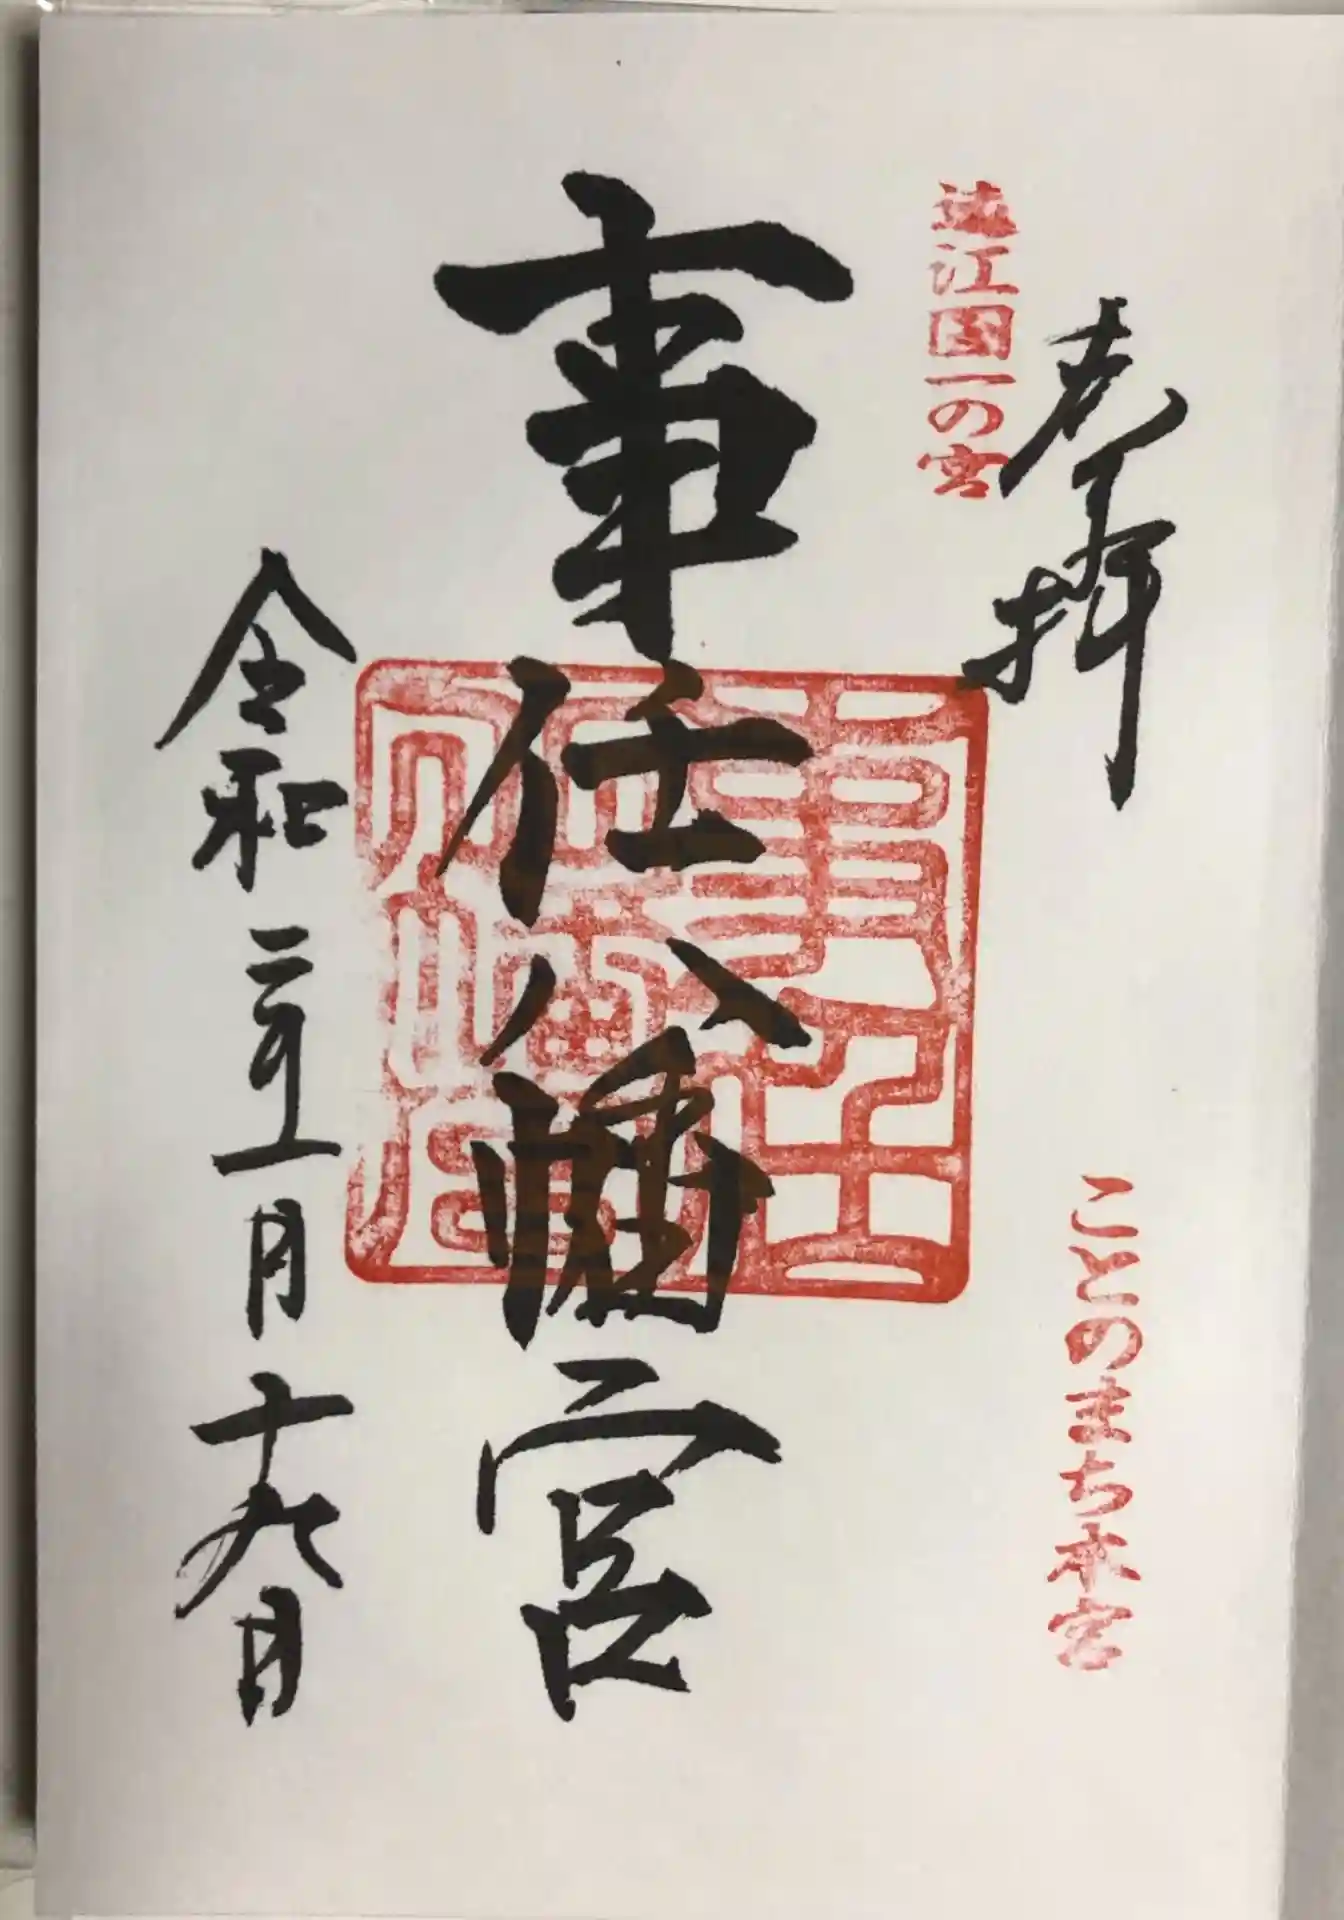 奉拝
ことのまち本宮
遠江国一の宮
事任八幡宮
令和二年一月十九日